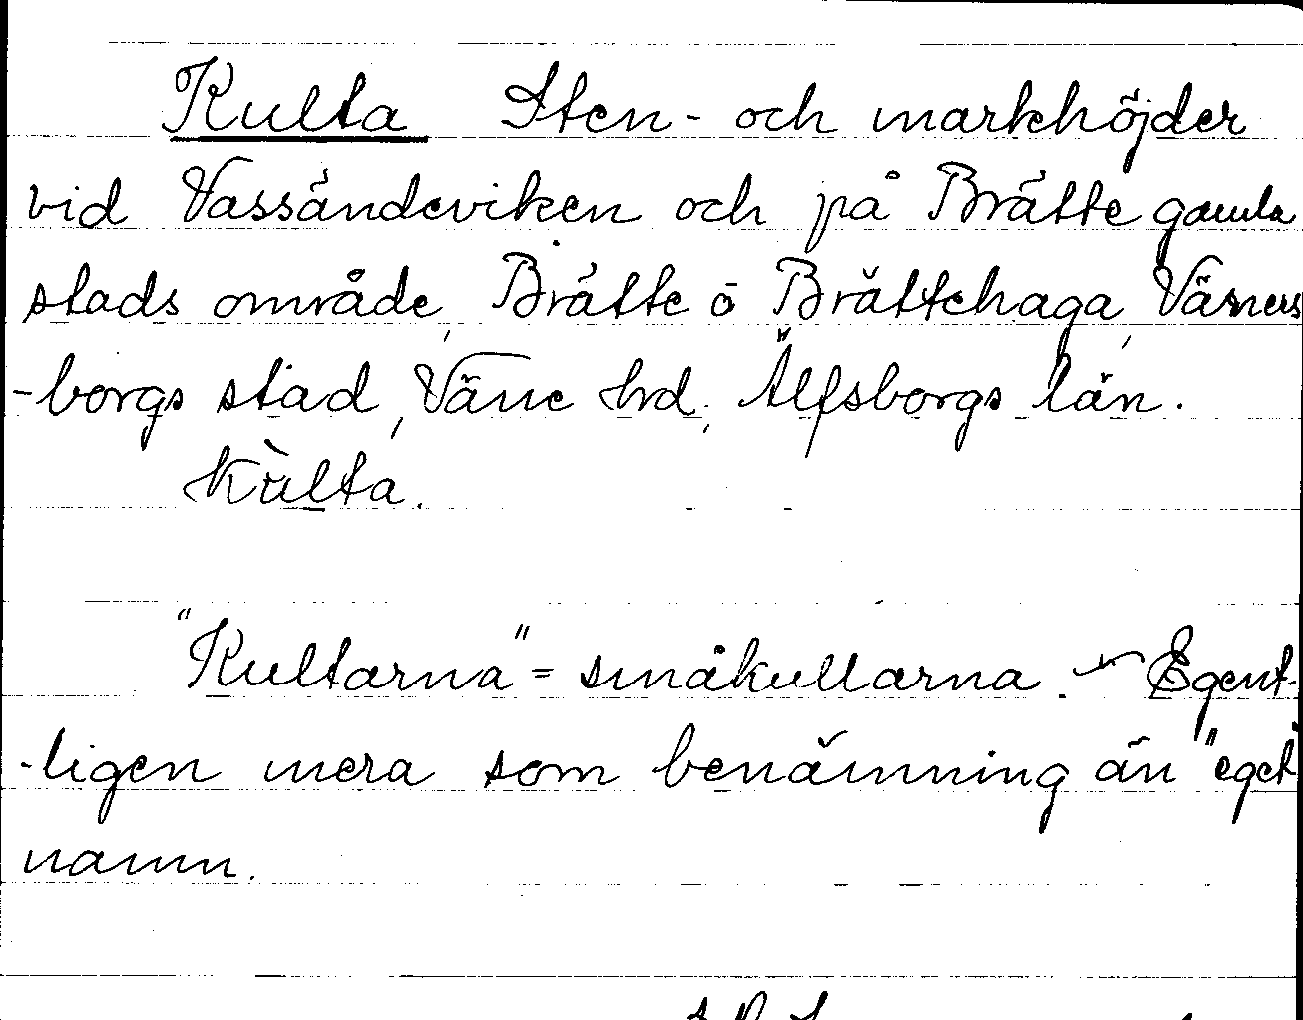 Kulta Sten- och markhöjder
vid Vassändeviken och på Brätte gamla
stads område, Brätte o Brättehaga, Väners
-borgs stad, Väne hrd, Älfsborgs län.
kùlta.
"Kultarna" = småkullarna. - Egent-
-ligen mera som benämning än "eget"
namn.